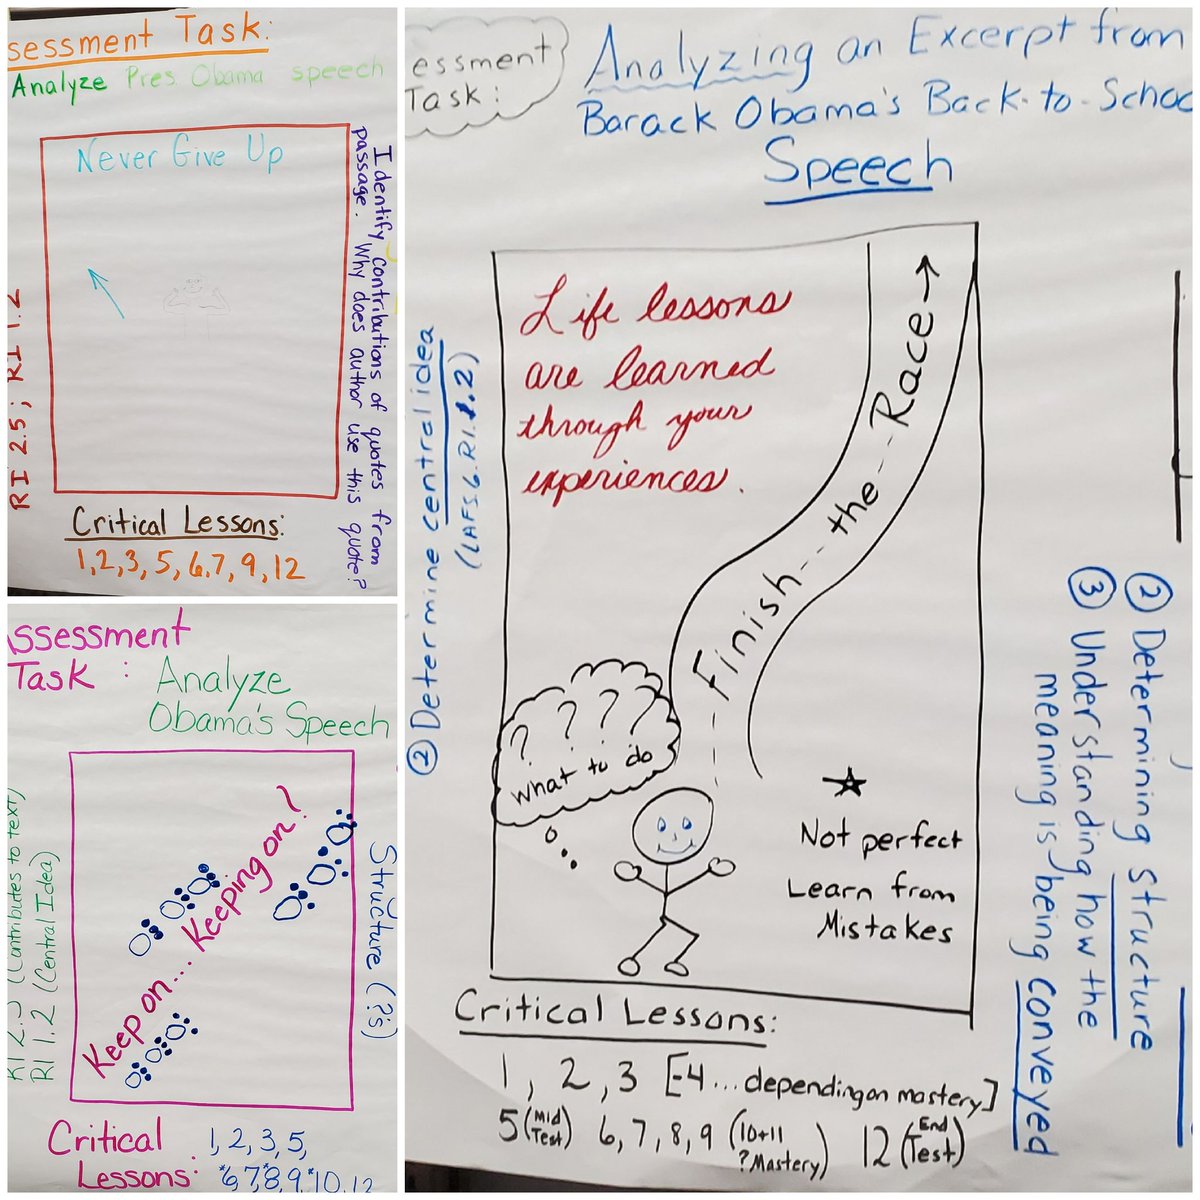 sessment Task:
Analyze Pres. Obama speech
Never Give Up
Identify contributions of quotes from
passage. Why does author use this quote?
RI 2.5; RI 1.2
Critical Lessons:
1,2,3,5,6,7,9,12
ssessment
Task : Analyze
Obama's Speech
Keep on... Keeping on!
(Contributes to text)
RI 1.2 (Central Idea)
Structure (?s)
Critical 1,2,3,5,
Lessons: *6,7,*8,9,*10,12
essment
Task:
Analyzing an Excerpt from
Barack Obama's Back-to-Schoo
Speech
Life lessons
are learned
through your
experiences.
Finish... the... Race →
? ? ? ?
what to do
★
Not perfect
Learn from
Mistakes
② Determine central idea
(LAFS.6.RI.1.2)
② Determining Structure
③ Understanding how the
meaning is being conveyed
Critical Lessons:
1, 2, 3 [-4... depending on mastery]
5 (Mid Test) 6, 7, 8, 9 (10+11 ?Mastery) 12 (End Test)